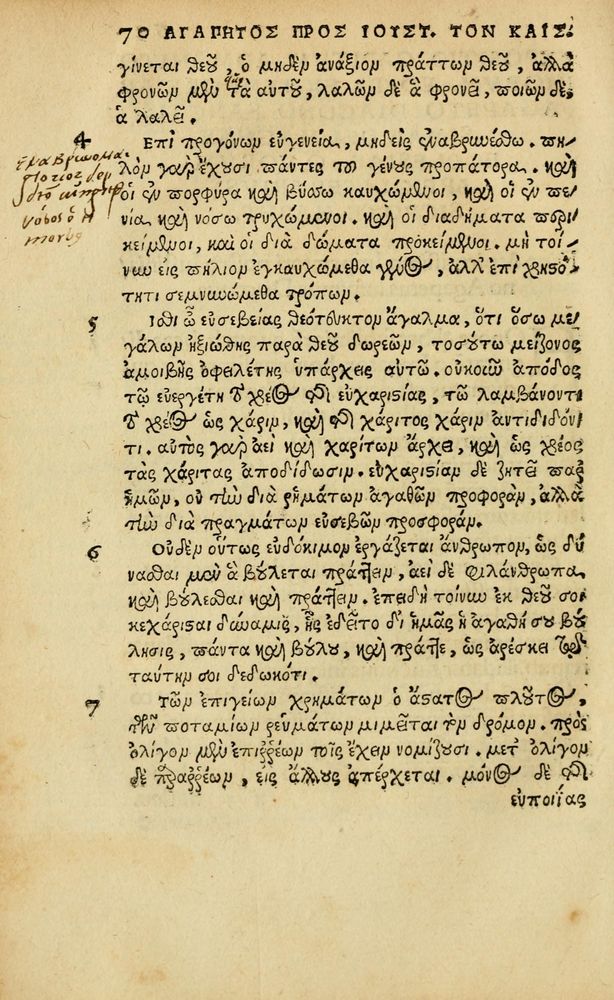 70 ΑΓΑΠΗΤΟΣ ΠΡΟΣ ΙΟΥΣΤ. ΤΟΝ ΚΑΙΣ.
γίνεται θεοῦ, ὁ μηδὲν ἀνάξιον πράττων θεοῦ, ἀλλὰ
φρονῶν μὲν τὰ αὐτοῦ, λαλῶν δὲ ἃ φρονεῖ, ποιῶν δὲ
ἃ λαλεῖ.
4 Ἐπὶ προγόνων εὐγενείᾳ, μηδεὶς ἐναβρυνέσθω. πη-
λὸν γὰρ ἔχουσι πάντες τοῦ γένους προπάτορα. καὶ
οἱ ἐν πορφύρᾳ καὶ βύσσῳ καυχώμενοι, καὶ οἱ ἐν πε-
νίᾳ καὶ νόσῳ τρυχώμενοι. καὶ οἱ διαδήματα περι-
κείμενοι, καὶ οἱ διὰ δώματα προκείμενοι. μὴ τοί-
νυν εἰς πήλιον ἐγκαυχώμεθα γένος, ἀλλ' ἐπὶ χρηστό-
τητι σεμνυνώμεθα τρόπων.
5 Ἴσθι ὦ εὐσεβείας θεότευκτον ἄγαλμα, ὅτι ὅσῳ με-
γάλων ἠξιώθης παρὰ θεοῦ δωρεῶν, τοσούτῳ μείζονος
ἀμοιβῆς ὀφειλέτης ὑπάρχεις αὐτῷ. οὐκοῦν ἀπόδος
τῷ εὐεργέτῃ τὸ χρέος τῆς εὐχαριστίας, τῷ λαμβάνοντι
τὸ χρέος ὡς χάριν, καὶ τῆς χάριτος χάριν ἀντιδιδόν-
τι. αὐτὸς γὰρ ἀεὶ καὶ χαρίτων ἄρχει, καὶ ὡς χρέος
τὰς χάριτας ἀποδίδωσιν. εὐχαριστίαν δὲ ζητεῖ παρ'
ἡμῶν, οὐ τὴν διὰ ῥημάτων ἀγαθῶν προφορὰν, ἀλλὰ
τὴν διὰ πραγμάτων εὐσεβῶν προσφοράν.
6 Οὐδὲν οὕτως εὐδόκιμον ἐργάζεται ἄνθρωπον, ὡς δύ
νασθαι μὲν ἃ βούλεται πράττειν, ἀεὶ δὲ φιλάνθρωπα
καὶ βούλεσθαι καὶ πράττειν. ἐπειδὴ τοίνυν ἐκ θεοῦ σοι
κεχάρισται δύναμις, ἧς ἐδεῖτο δι' ἡμᾶς ἡ ἀγαθή σου βού
λησις, πάντα καὶ βούλου, καὶ πράττε, ὡς ἀρέσκει τῷ
ταύτην σοι δεδωκότι.
7 Τῶν ἐπιγείων χρημάτων ὁ ἄστατος πλοῦτος,
τῶν ποταμίων ῥευμάτων μιμεῖται τὸν δρόμον. πρὸς
ὀλίγον μὲν ἐπιῤῥέων τοῖς ἔχειν νομίζουσι. μετ' ὀλίγον
δὲ παραῤῥέων, εἰς ἄλλους ἀπέρχεται. μόνος δὲ τῆς
εὐποιΐας